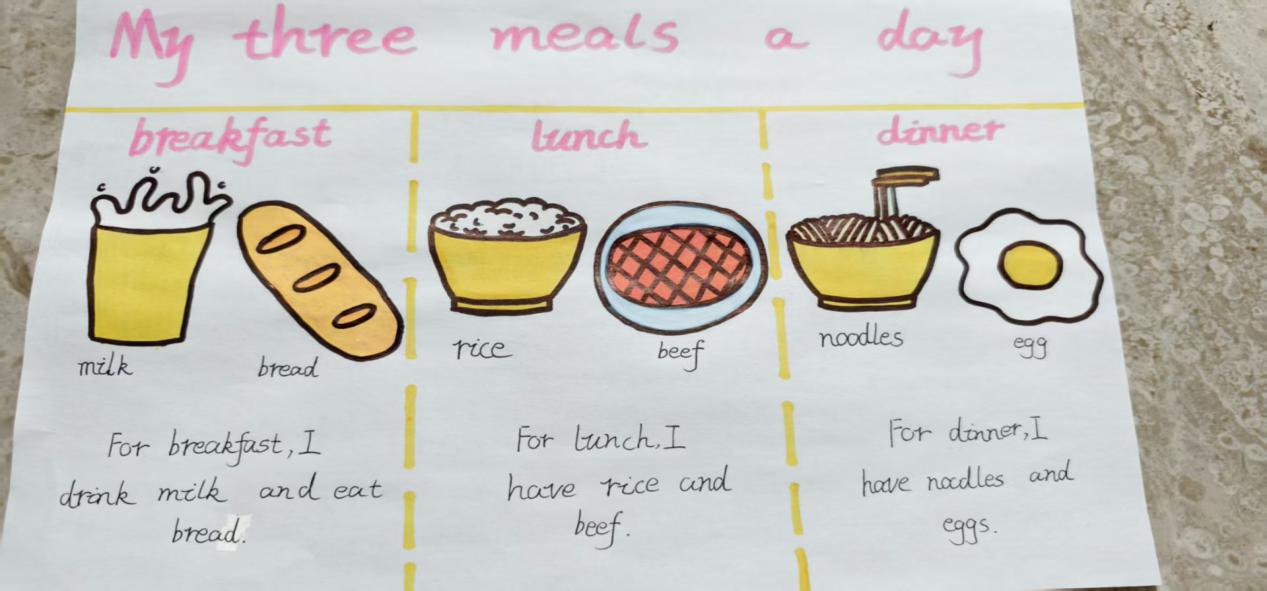 My three meals a day
breakfast
milk
bread
For breakfast, I
drink milk and eat
bread.
lunch
rice
beef
For lunch, I
have rice and
beef.
dinner
noodles
egg
For dinner, I
have noodles and
eggs.